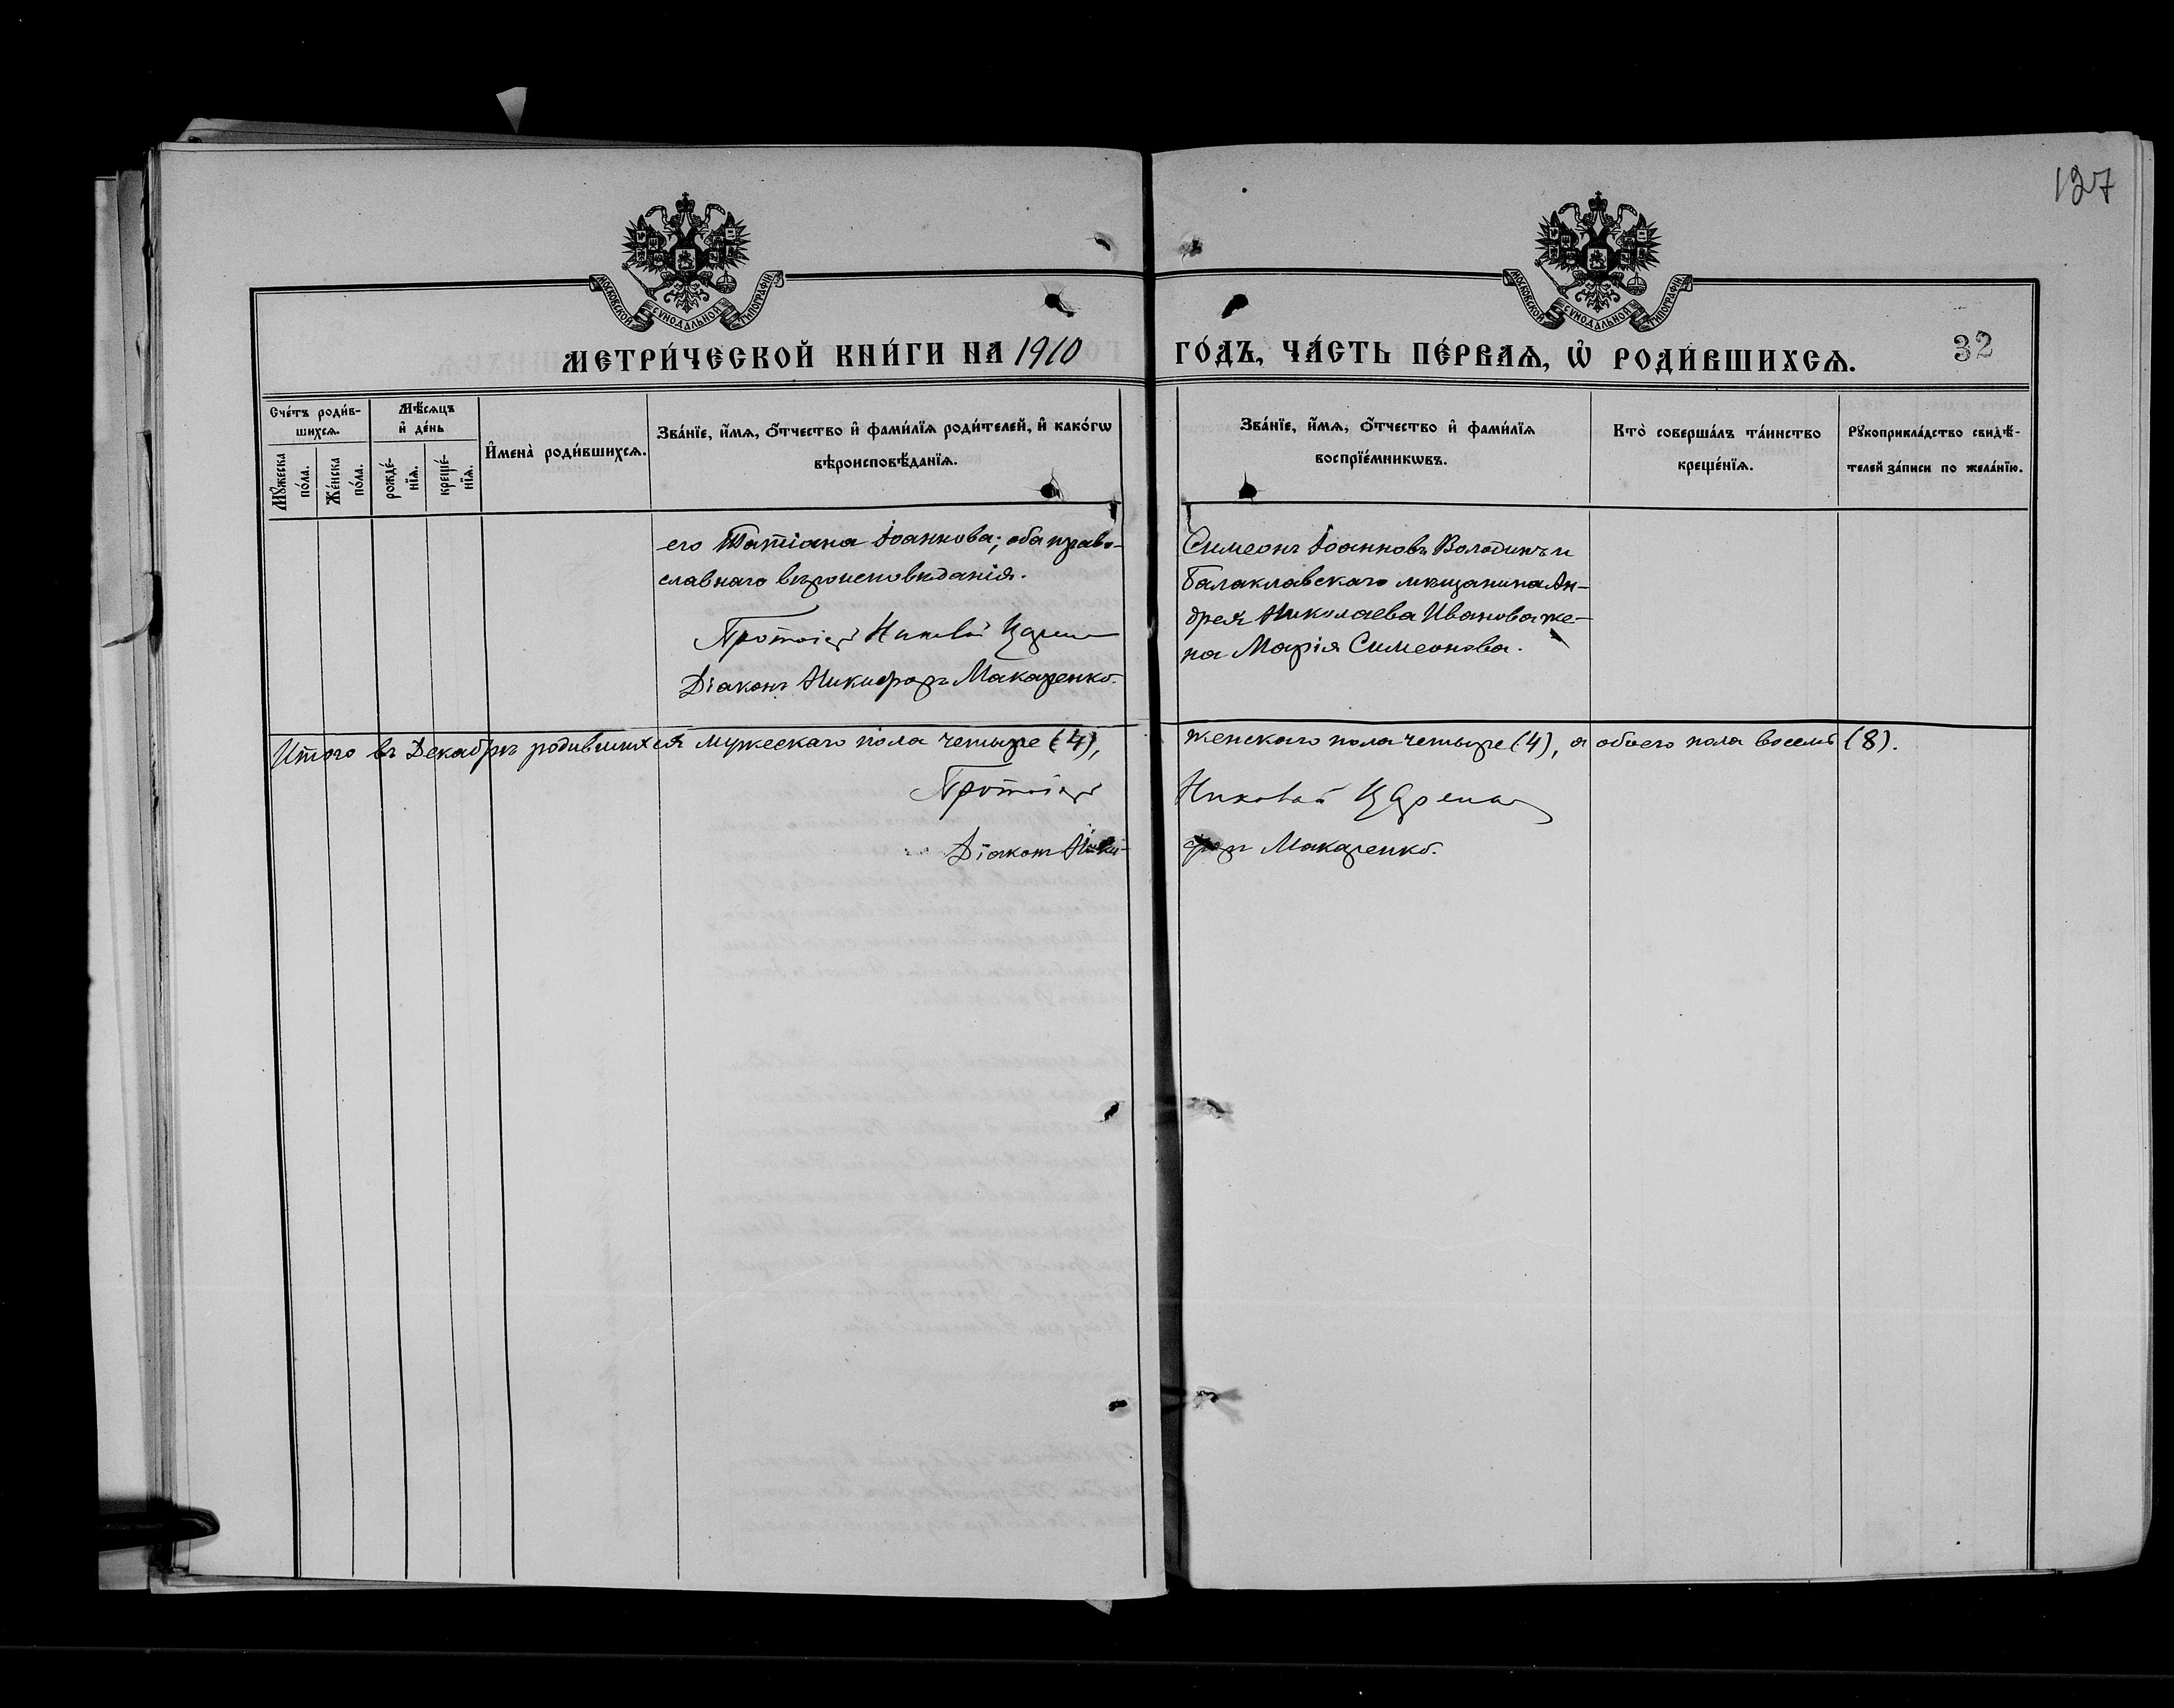 127
МОСКОВСКОЙ СѴНОДАЛЬНОЙ ТИПОГРАФІИ.
МОСКОВСКОЙ СѴНОДАЛЬНОЙ ТИПОГРАФІИ.
МЕТРИ́ЧЕСКОЙ КНИ́ГИ НА 1910 ГО́ДЪ, ЧА́СТЬ ПЕ́РВАѦ, Ѽ РОДИ́ВШИХСѦ. 32
Сче́тъ роди́в-
шихсѧ.
Мꙋ́жеска по́ла.
Же́нска по́ла.
Мѣ́сѧцъ
и҆ де́нь
рожде́-
нїѧ.
креще́-
нїѧ.
И҆мена̀ роди́вшихсѧ.
Зва́нїе, и҆́мѧ, ѻ҆́тчество и҆ фами́лїѧ роди́телей, и҆ како́гѡ
вѣроисповѣ́данїѧ.
Зва́нїе, и҆́мѧ, ѻ҆́тчество и҆ фами́лїѧ
воспрїе́мникѡвъ.
Кто̀ соверша́лъ та́инство
креще́нїѧ.
Рꙋкоприкла́дство свидѣ́-
телей за́писи по жела́нїю.
его Татіана Іоаннова; оба право-
славнаго вѣроисповѣданія.
Протоіерей Николай
Діаконъ Никифоръ Макаренко.
Симеонъ Іоанновъ Володинъ и
Балаклавскаго мѣщанина Ан-
дрея Николаева Иванова же-
на Марія Симеонова.
Итого въ Декабрѣ родившихся мужескаго пола четыре (4), женскаго пола четыре (4), а обоего пола восемь (8).
Протоіерей Николай
Діаконъ Никифоръ Макаренко.